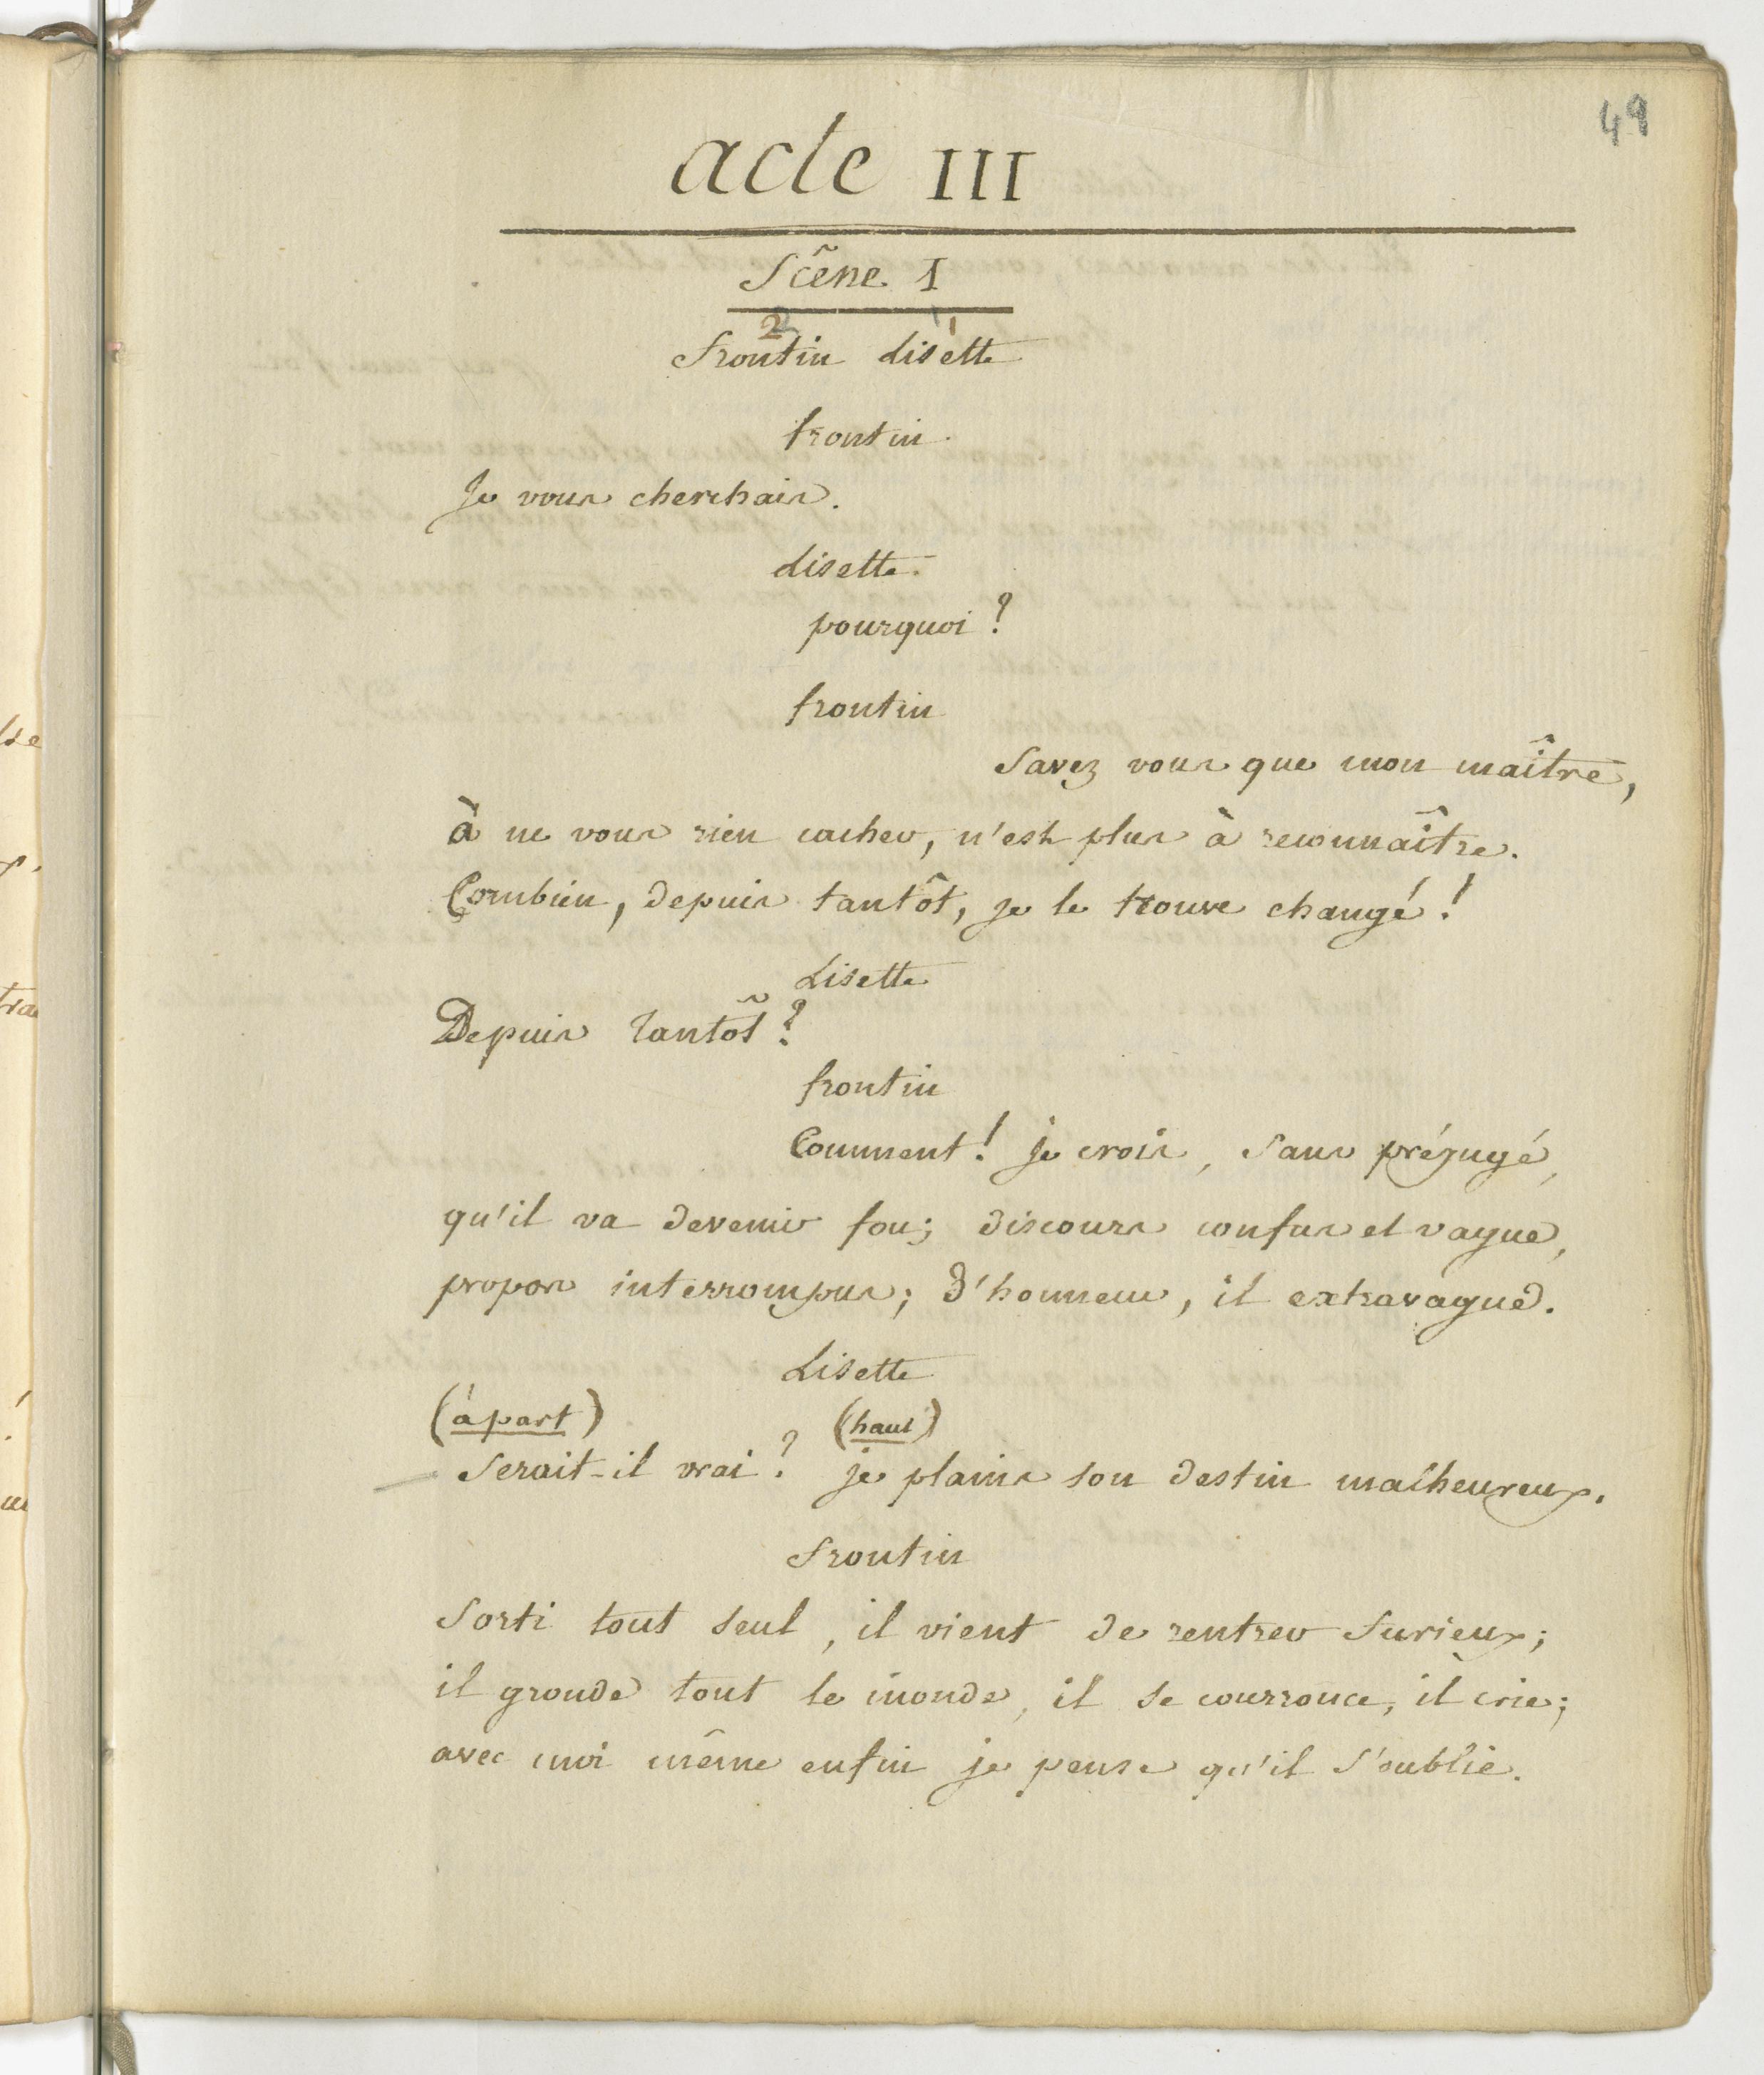 49
acte III
Scêne I
2 1
frontin Lisette
frontin.
Je vous cherchais.
Lisette.
pourquoi ?
frontin
Savez vous que mon maître,
à ne vous rien cacher, n'est plus à reconnaître.
Combien, depuis tantôt, je le trouve changé !
Lisette
Depuis tantôt ?
frontin
Comment ! je crois, sans préjugé,
qu'il va devenir fou; discours confus et vague,
propos interrompus; d'honneur, il extravague.
Lisette
(à part) (haut)
Serait-il vrai ? je plains son destin malheureux.
frontin
Sorti tout seul, il vient de rentrer furieux;
il gronde tout le monde, il se courrouce, il crie;
avec moi même enfin je pense qu'il s'oublie.